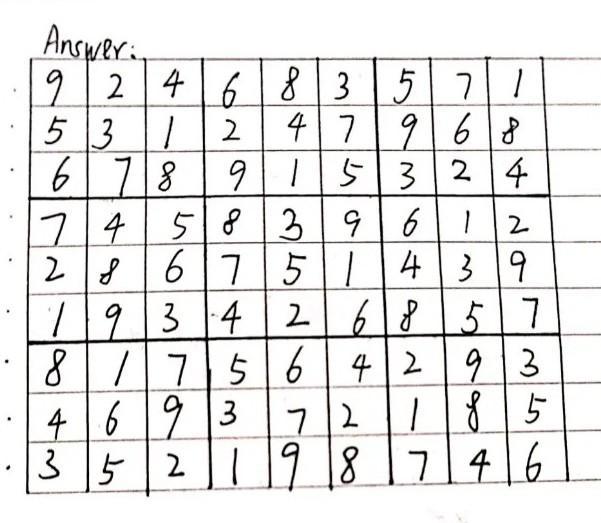 Answer:
9 2 4 6 8 3 5 7 1
5 3 1 2 4 7 9 6 8
6 7 8 9 1 5 3 2 4
7 4 5 8 3 9 6 1 2
2 8 6 7 5 1 4 3 9
1 9 3 4 2 6 8 5 7
8 1 7 5 6 4 2 9 3
4 6 9 3 7 2 1 8 5
3 5 2 1 9 8 7 4 6